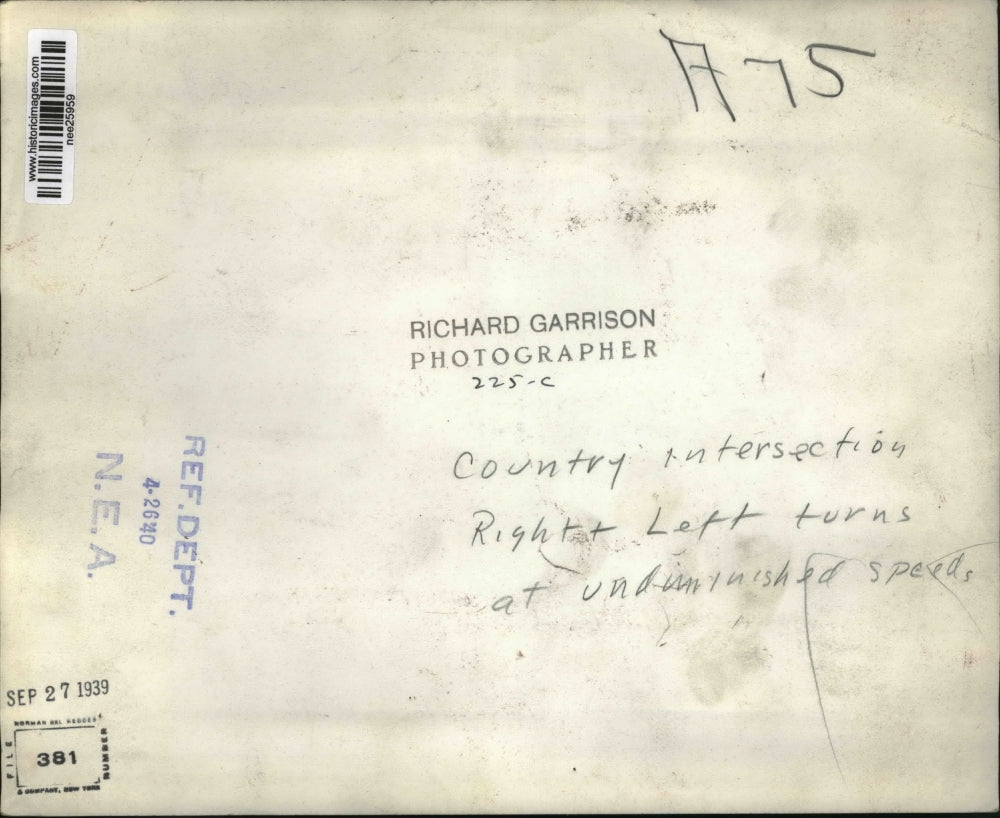 www.historicimages.com
nee25959
A-75
RICHARD GARRISON
PHOTOGRAPHER
225-C
Country intersection
Right + Left turns
at undiminished speeds
REF. DEPT.
4-26'40
N.E.A.
SEP 27 1939
NORMAN BEL GEDDES
FILE
381
NUMBER
& COMPANY, NEW YORK